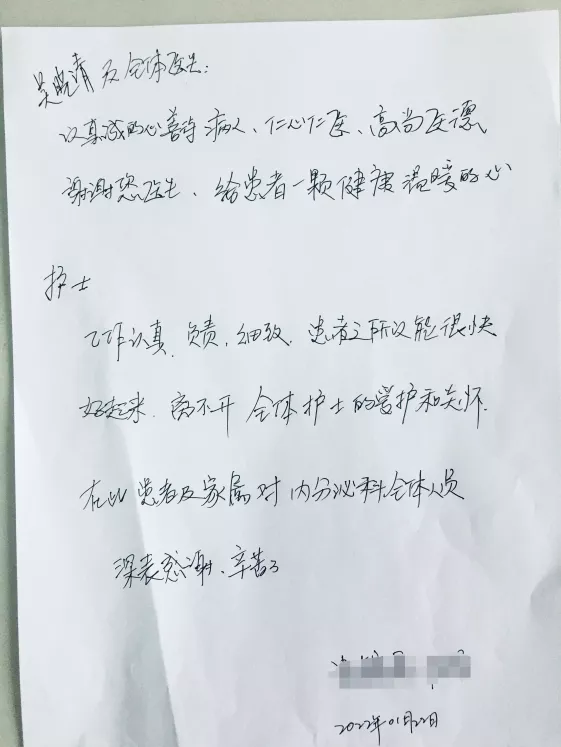 吴晓清及全体医生:
以真诚的心善待病人、仁心仁医、高尚医德
谢谢您医生、给患者一颗健康温暖的心
护士
工作认真、负责,细致.患者之所以能很快
好起来.离不开全体护士的营护和关怀.
在此患者及家属对内分泌科全体人员
深表感谢、辛苦了
2022年01月22日